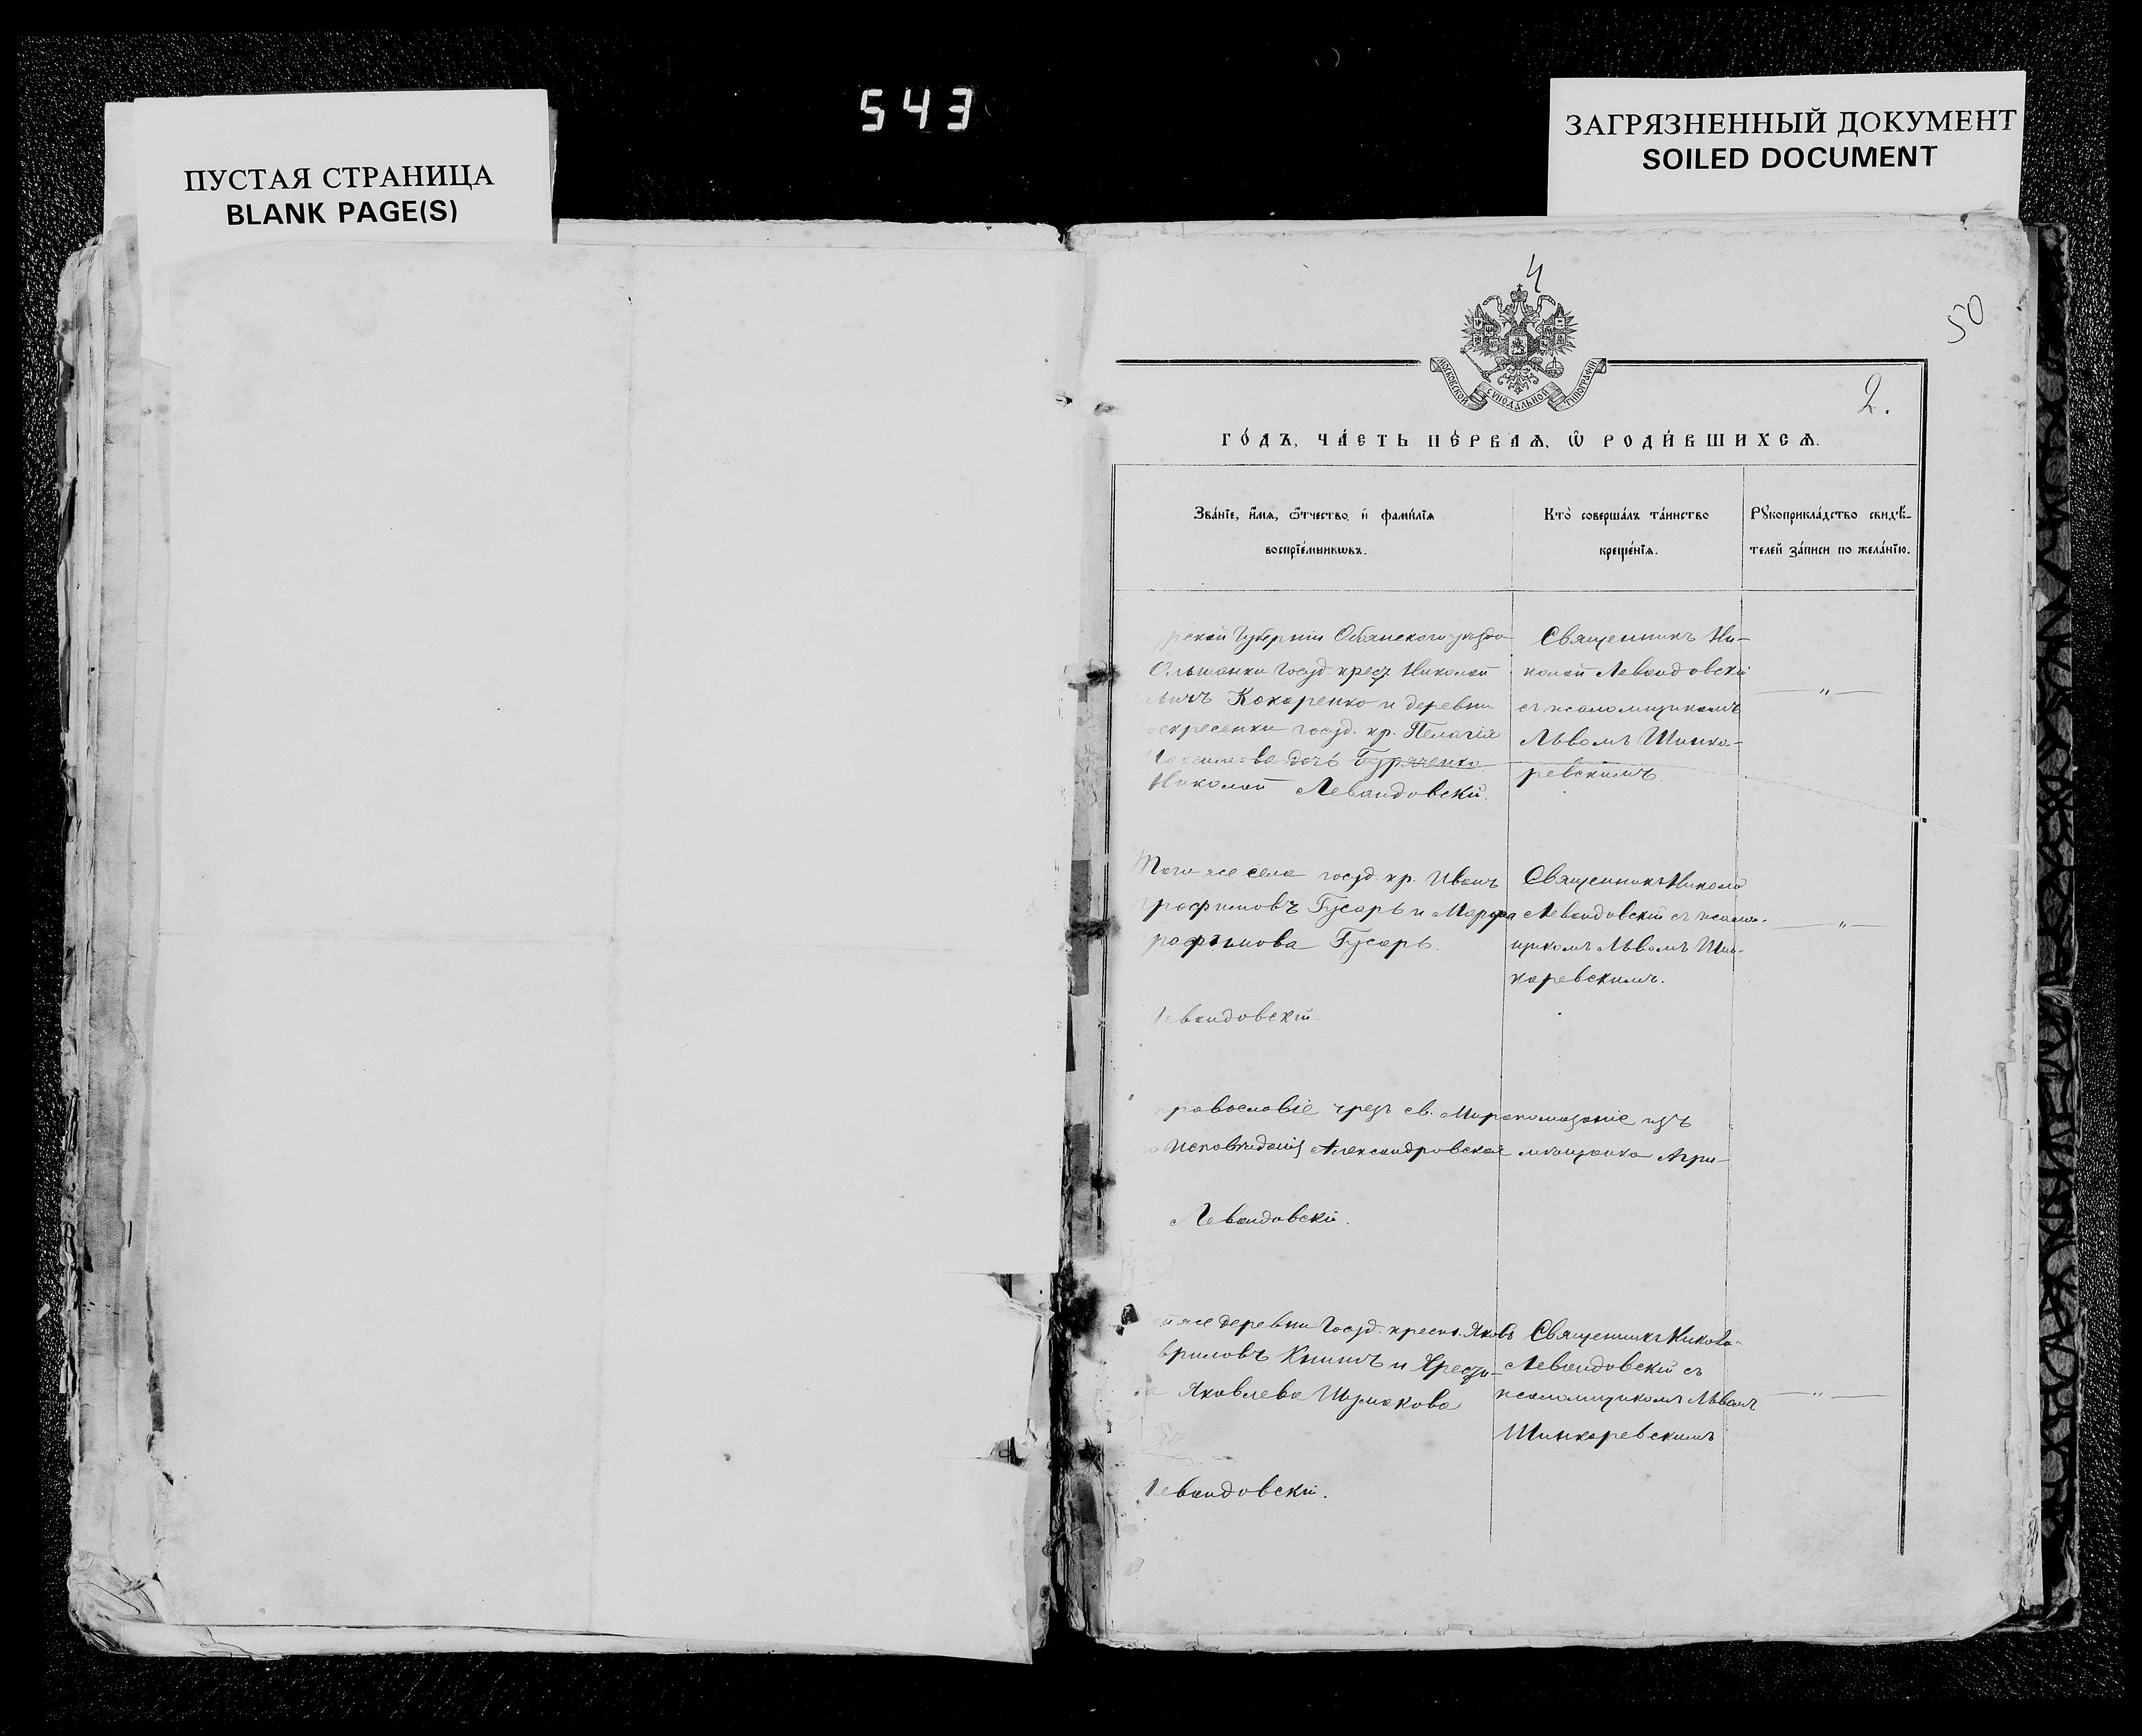 543
ПУСТАЯ СТРАНИЦА
BLANK PAGE(S)
ЗАГРЯЗНЕННЫЙ ДОКУМЕНТ
SOILED DOCUMENT
4
50
МОСКОВСКОЙ СѴНОДАЛЬНОЙ ТИПОГРАФІИ
2.
ГО́ДЪ, ЧА́СТЬ ПЕ́РВАѦ, Ѽ РОДИ́ВШИХСѦ.
Зва́нїе, и҆́мѧ, ѻ҆́тчество, и҆ фами́лїѧ
воспрїе́мникѡвъ.
Кто̀ соверша́лъ та́инство
креще́нїѧ.
Рꙋкоприкла́дство свидѣ́-
телей за́писи по жела́нїю.
рской Губерніи Обянского уезда
Ольшанки Госуд. крест. Николай
Кокаренко и деревни
скресенки госуд. кр. Пелагія
дочь Гурченко
Николай Левандовскій.
Священникъ Ни-
колай Левандовскій
съ псаломщикомъ
Львомъ Шинка-
ревскимъ.
"
Того же села госуд. кр. Иванъ
рафимовъ Гусарь и Марфа
рафимова Гусарь.
Левандовскій.
Священникъ Николай
Левандовскій съ псалом-
щикомъ Львомъ Шин-
каревскимъ.
"
православіе чрезъ св. Миропомазаніе изъ
исповѣданія Александровская мѣщанка Агри-
Левандовскій.
же деревни Госуд. крест. Яковъ
вриловъ Книшъ и Хрести-
на Яковлева Шумакова
Левандовскій.
Священникъ Никола-
Левандовскій съ
псаломщикомъ Львомъ
Шинкаревскимъ
"